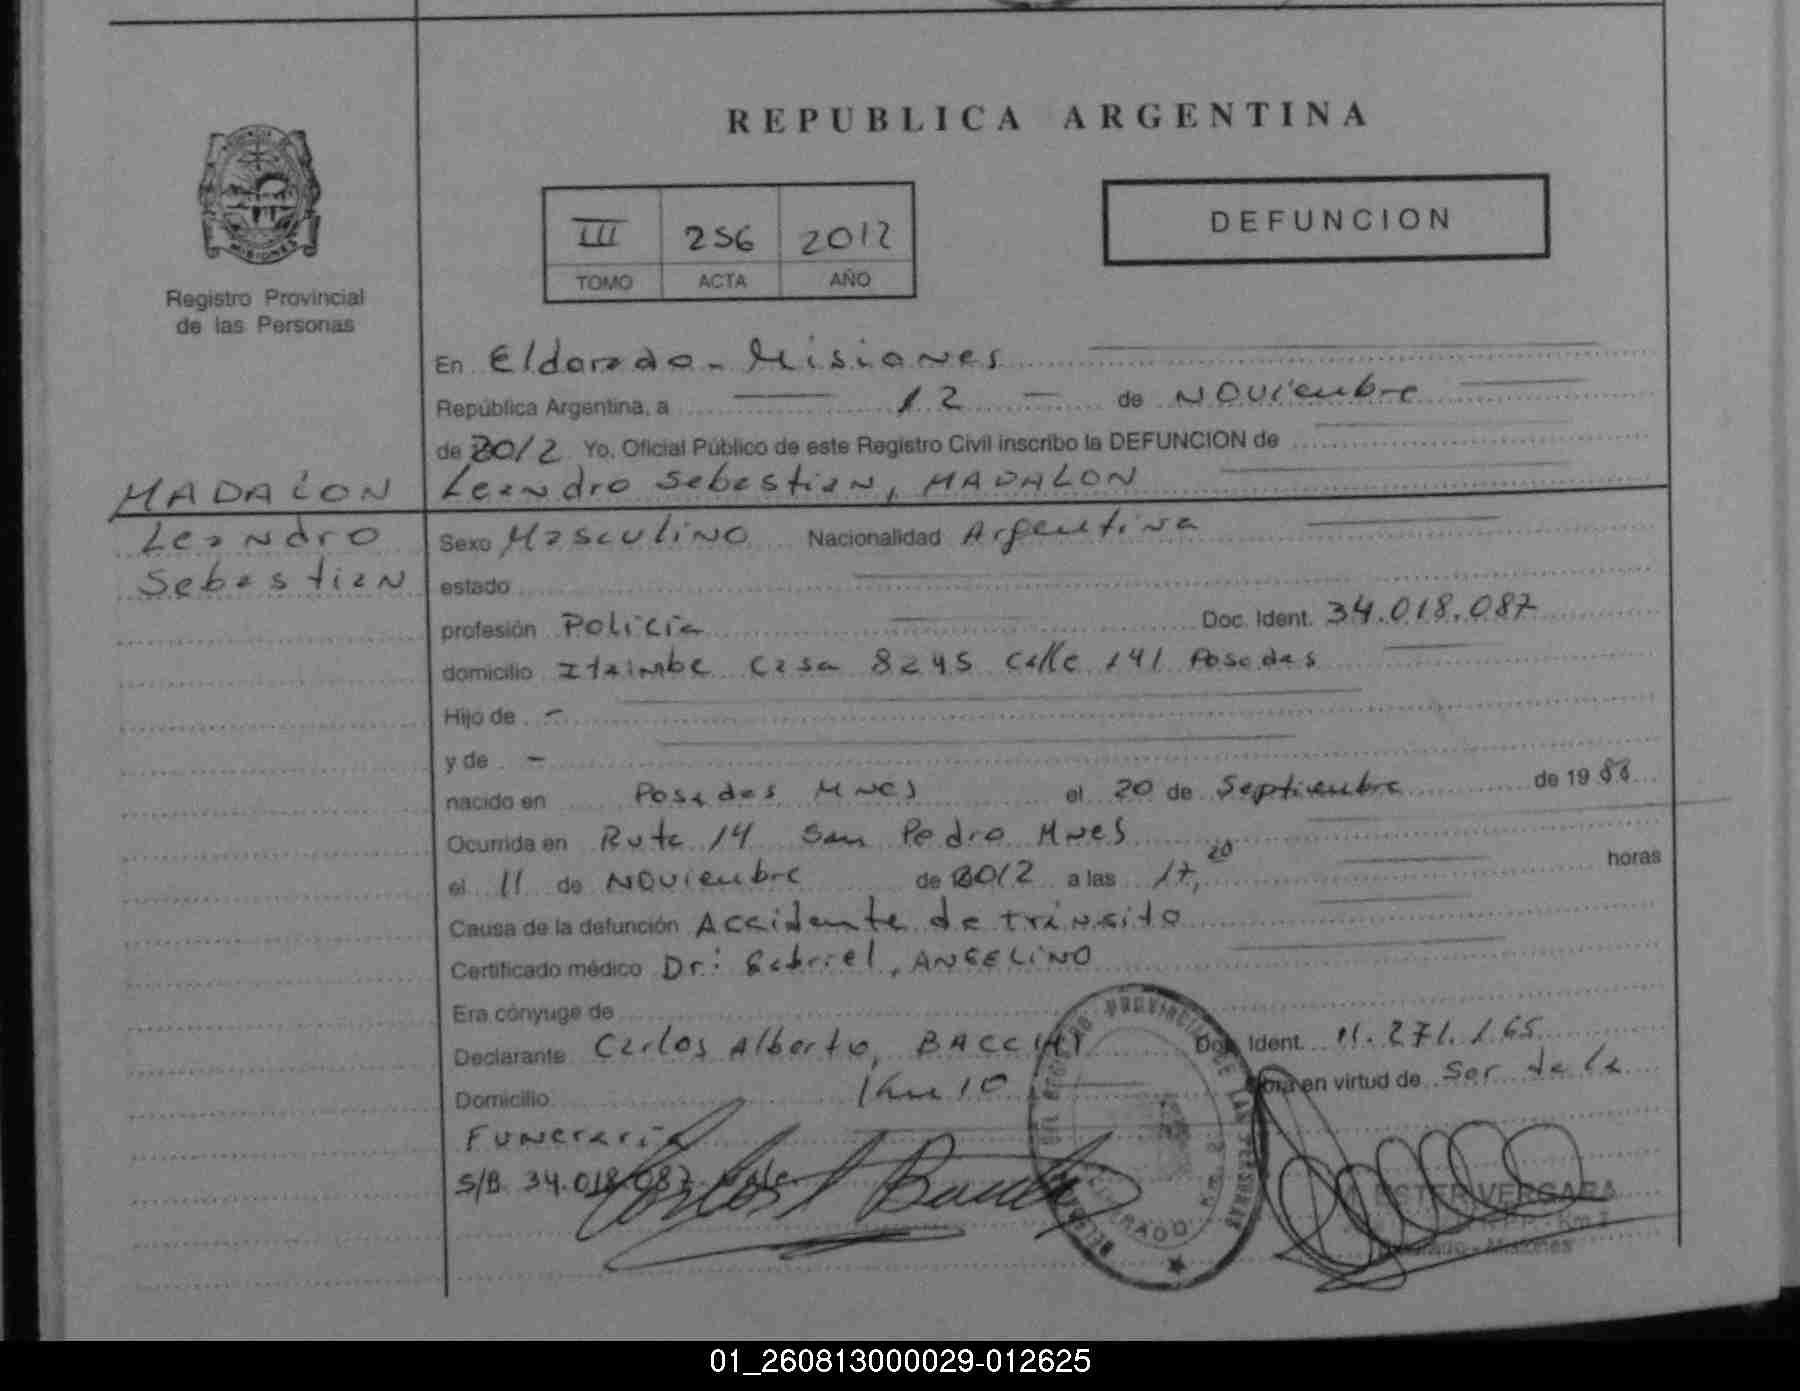 REPUBLICA ARGENTINA
III 256 2012
TOMO ACTA AÑO
DEFUNCION
MISIONES
Registro Provincial
de las Personas
En Eldorado - Misiones
República Argentina, a 12 de Noviembre
de 2012 Yo, Oficial Público de este Registro Civil inscribo la DEFUNCION de
MADALON
Leandro Sebastian, MADALON
Leandro
Sebastian
Sexo Masculino Nacionalidad Argentina
estado
profesión Policia Doc. Ident. 34.018.087
domicilio Itaimbe Casa 8245 Calle 141 Posadas
Hijo de -
y de -
nacido en Posadas Mnes el 20 de Septiembre de 1988
Ocurrida en Ruta 14 San Pedro Mnes
el 11 de Noviembre de 2012 a las 17,20 horas
Causa de la defunción Accidente de tránsito
Certificado médico Dr: Gabriel, ANGELINO
Era cónyuge de
Declarante Carlos Alberto, Doc. Ident. 11.271.165
Domicilio Km 10 Obra en virtud de Ser de la
Funeraria
S/B 34.018.087 Vale.
DEL REGISTRO PROVINCIAL DE LAS PERSONAS
ELDORADO Km. 2
ESTER VERGARA
Eldorado - Misiones
01_260813000029-012625